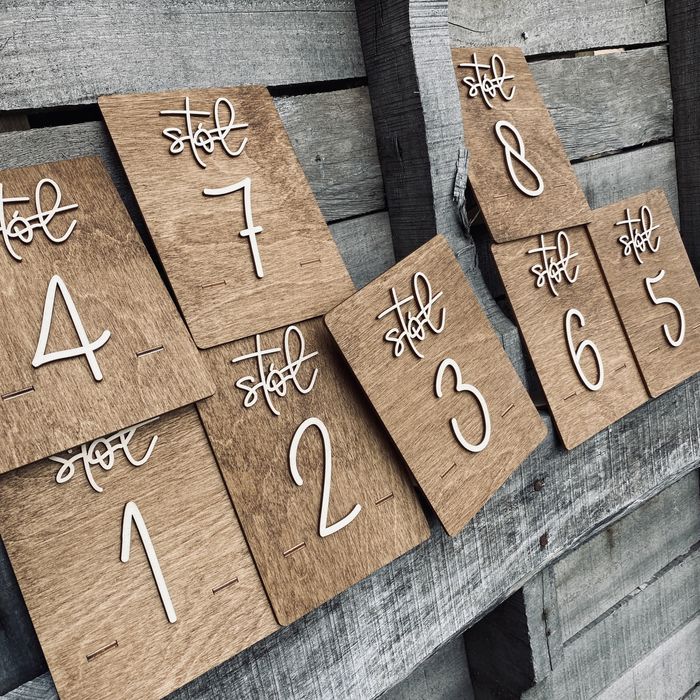 stół
7
stół
8
stół
4
stół
3
stół
6
stół
5
stół
2
stół
1